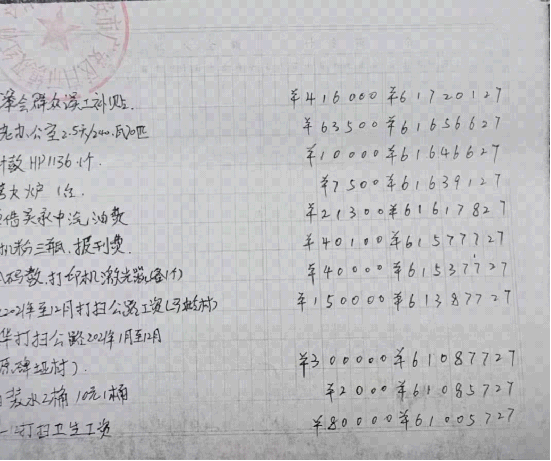 会群众误工补贴. ¥416000 ¥61720127
办公室2.5 ¥63500 ¥61656627
HP1136.1个. ¥10000 ¥61646627
火炉 1台. ¥7500 ¥61639127
承中汽油费 ¥21300 ¥61617827
机粉三瓶、报刊费. ¥40100 ¥61577727
码数,打印机激光器(1个) ¥40000 ¥61537727
2021年至12月打扫公路工资( 村) ¥150000 ¥61387727
华打扫公路2021年1月至12月
原碑垭村). ¥300000 ¥61087727
装水2桶 10元1桶 ¥2000 ¥61085727
打扫卫生工资 ¥80000 ¥61005727